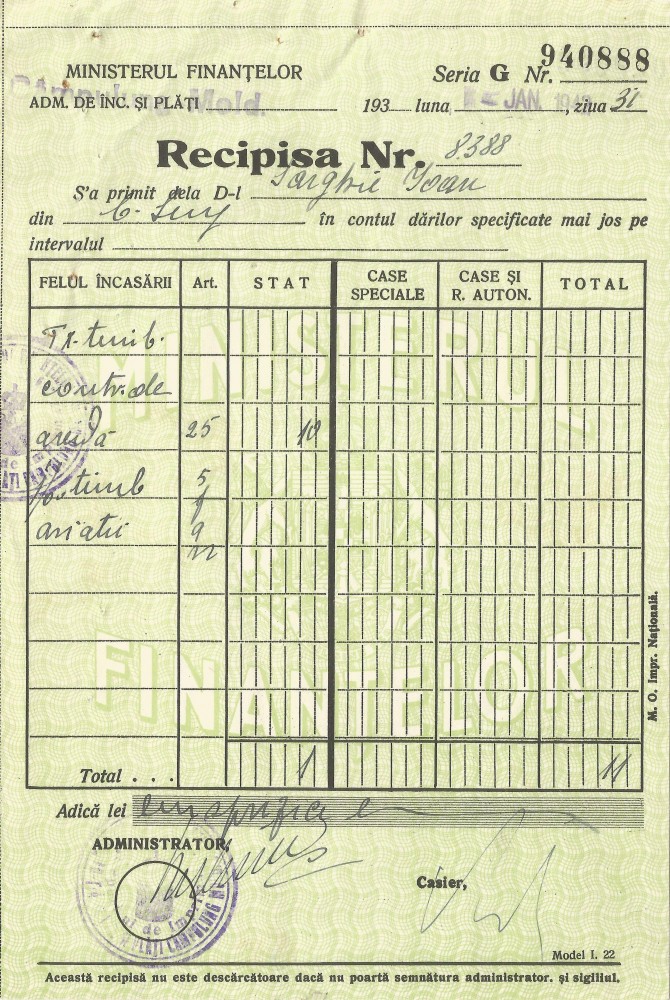 940888
MINISTERUL FINANȚELOR Seria G Nr.
Câmpulung Mold.
ADM. DE ÎNC. ȘI PLĂȚI 193 luna, JAN. , ziua 31
Recipisa Nr. 8388
S'a primit dela D-l Ioan
din în contul dărilor specificate mai jos pe
intervalul
FELUL ÎNCASĂRII Art. STAT CASE SPECIALE CASE ȘI R. AUTON. TOTAL
MINISTERUL
Tx. timb.
contr. de
arendă 25 10
timb 5
aviatii 9
FINANTELOR
Total . . . 1 11
Adică lei
ADMINISTRATOR,
Casier,
M. O. Impr. Națională.
Model I. 22
Această recipisă nu este descărcătoare dacă nu poartă semnătura administrator. și sigiliul.